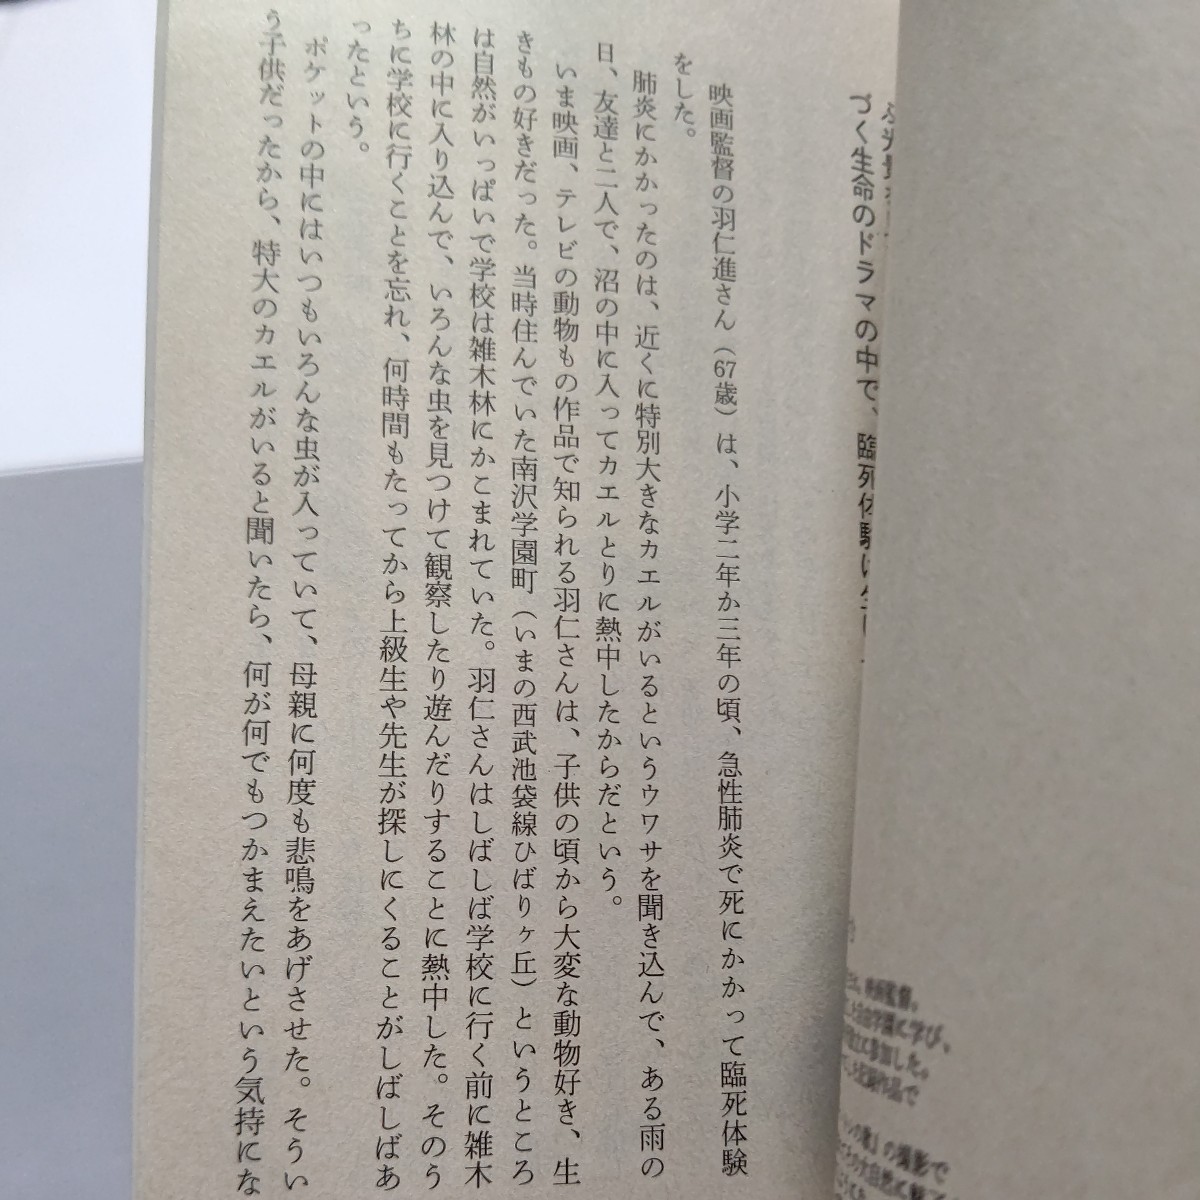 づく生命のドラマの中で、臨死体験は
映画監督。
自由学園に学び、
に参加した。
記録作品で
の歌』の撮影で
映画監督の羽仁進さん（67歳）は、小学二年か三年の頃、急性肺炎で死にかかって臨死体験
をした。
肺炎にかかったのは、近くに特別大きなカエルがいるというウワサを聞き込んで、ある雨の
日、友達と二人で、沼の中に入ってカエルとりに熱中したからだという。
いま映画、テレビの動物もの作品で知られる羽仁さんは、子供の頃から大変な動物好き、生
きもの好きだった。当時住んでいた南沢学園町（いまの西武池袋線ひばりヶ丘）というところ
は自然がいっぱいで学校は雑木林にかこまれていた。羽仁さんはしばしば学校に行く前に雑木
林の中に入り込んで、いろんな虫を見つけて観察したり遊んだりすることに熱中した。そのう
ちに学校に行くことを忘れ、何時間もたってから上級生や先生が探しにくることがしばしばあ
ったという。
ポケットの中にはいつもいろんな虫が入っていて、母親に何度も悲鳴をあげさせた。そうい
う子供だったから、特大のカエルがいると聞いたら、何が何でもつかまえたいという気持にな